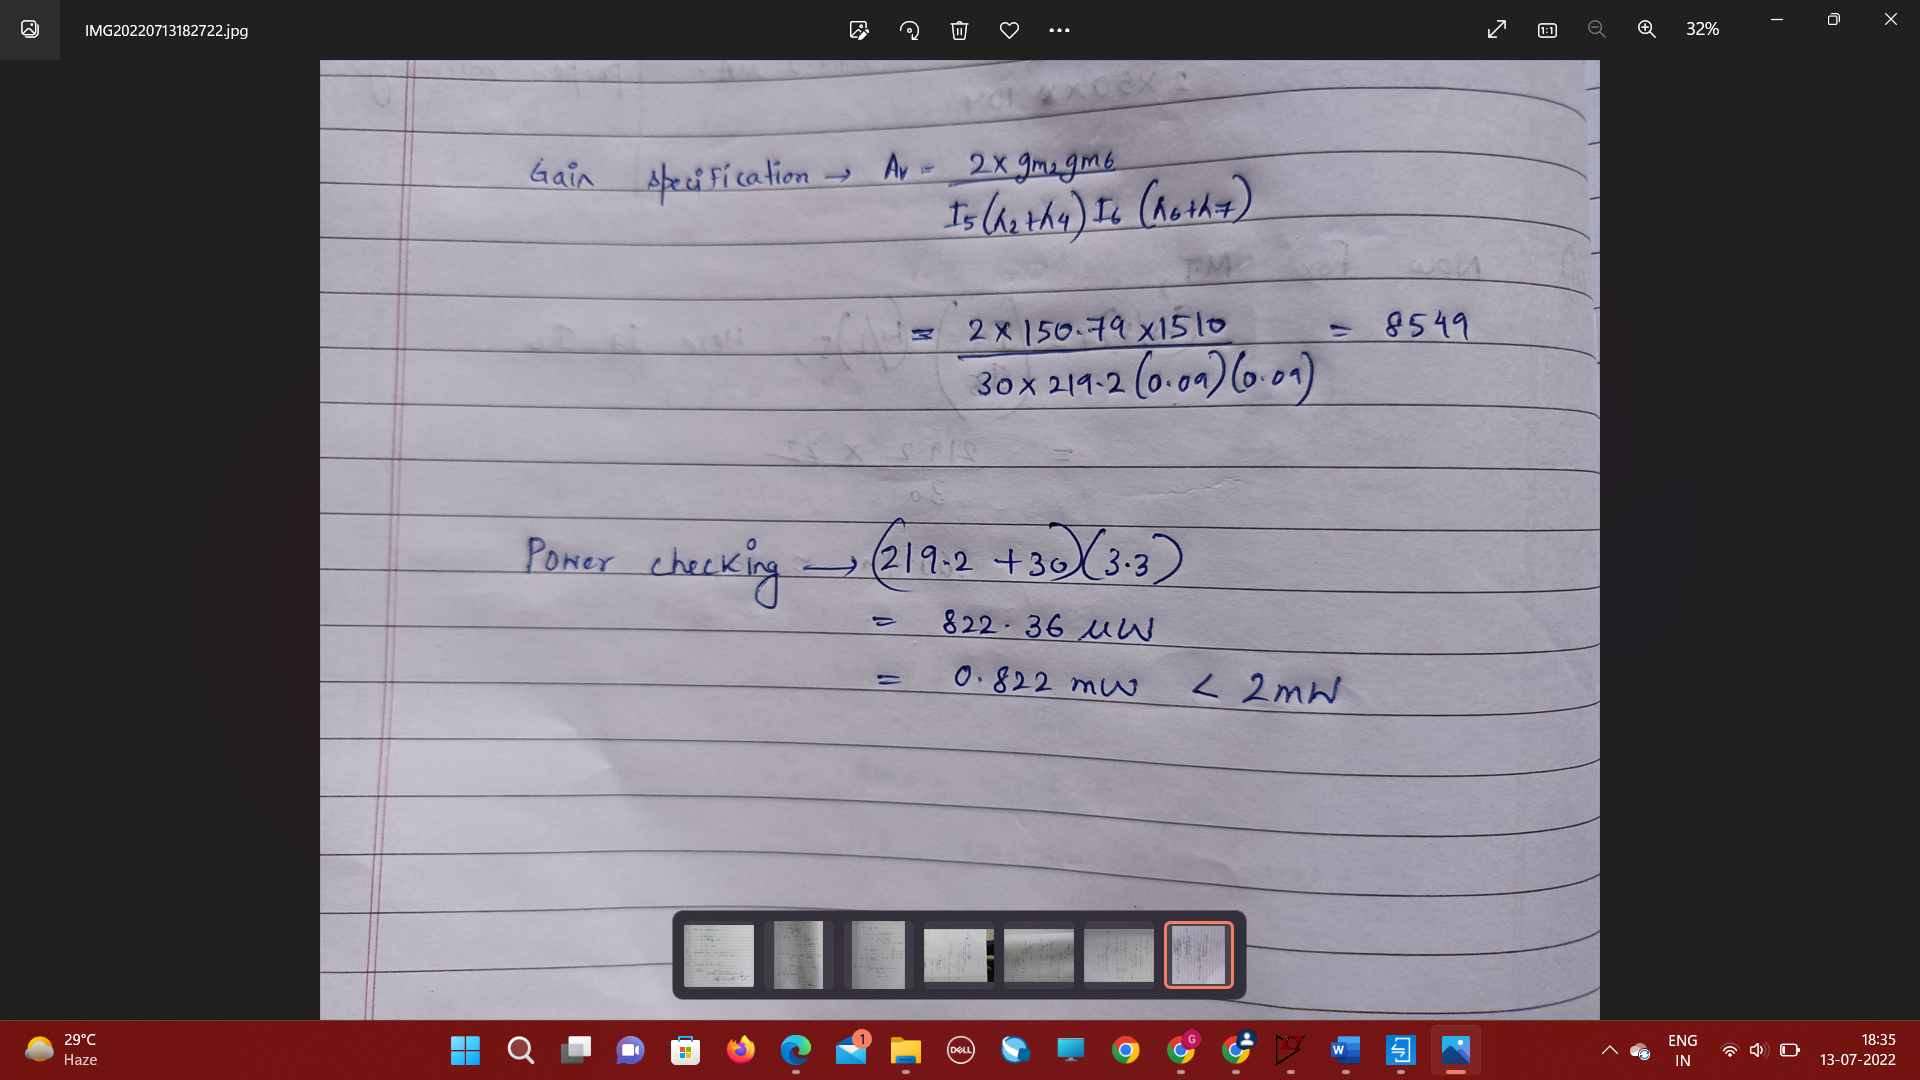 IMG20220713182722.jpg
32%
Gain specification → Av = 2 x gm2 gm6
I5 (λ2+λ4) I6 (λ6+λ7)
= 2 x 150.79 x 1510 = 8549
30 x 219.2 (0.09) (0.09)
Power checking → (219.2 + 30) (3.3)
= 822.36 uW
= 0.822 mW < 2mW
29°C
Haze
1
DELL
G
ENG
IN
18:35
13-07-2022